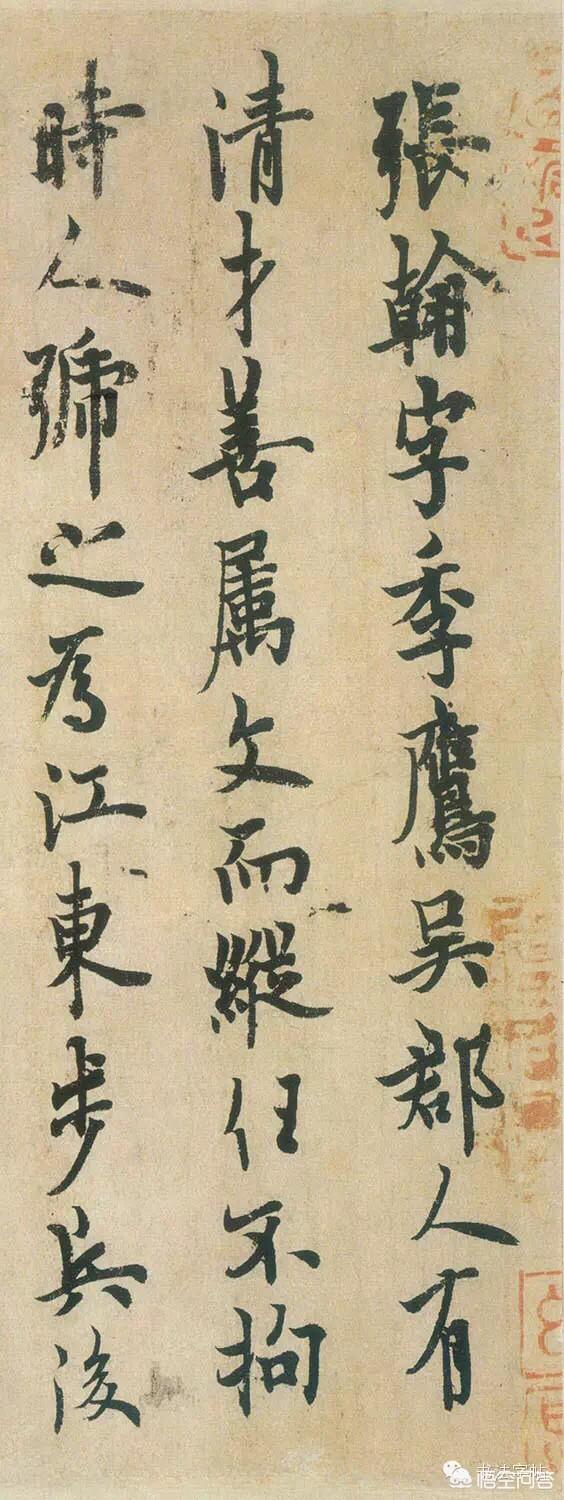 張翰字季鷹吳郡人有
清才善属文而縱任不拘
時人號之為江東步兵後
書法字帖
悟空问答